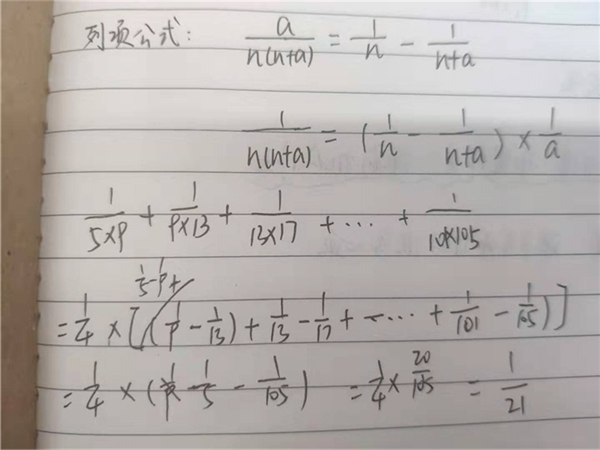 列项公式: a/n(n+a) = 1/n - 1/n+a
1/n(n+a) = (1/n - 1/n+a) × 1/a
1/5×9 + 1/9×13 + 1/13×17 + ... + 1/101×105
1/5 - 1/9 +
= 1/4 × [(1/9 - 1/13) + 1/13 - 1/17 + ... + 1/101 - 1/105)]
= 1/4 × (1/5 - 1/105) = 1/4 × 20/105 = 1/21